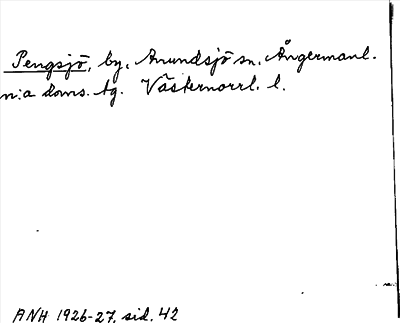 Pengsjö, by, Anundsjö sn. Ångermanl.
n:a doms. tg. Västernorrl. l.
ANH 1926-27, sid. 42